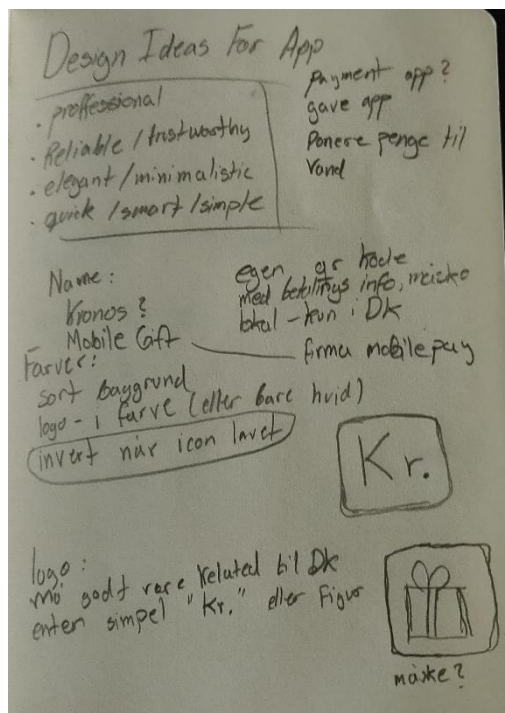 Design Ideas For App
• proffessional
• Reliable / trustworthy
• elegant/minimalistic
• quick /smart/simple
Payment app?
gave app
Donere penge til
Vand
Name:
Kronos?
Mobile Gift
egen qr kode
med betalings info, måske
lokal - kun i DK
firma mobilepay
Farver:
sort baggrund
logo - i farve (eller bare hvid)
invert når icon lavet
Kr.
logo:
må godt være related til DK
enten simpel "Kr." eller Figur
måske?